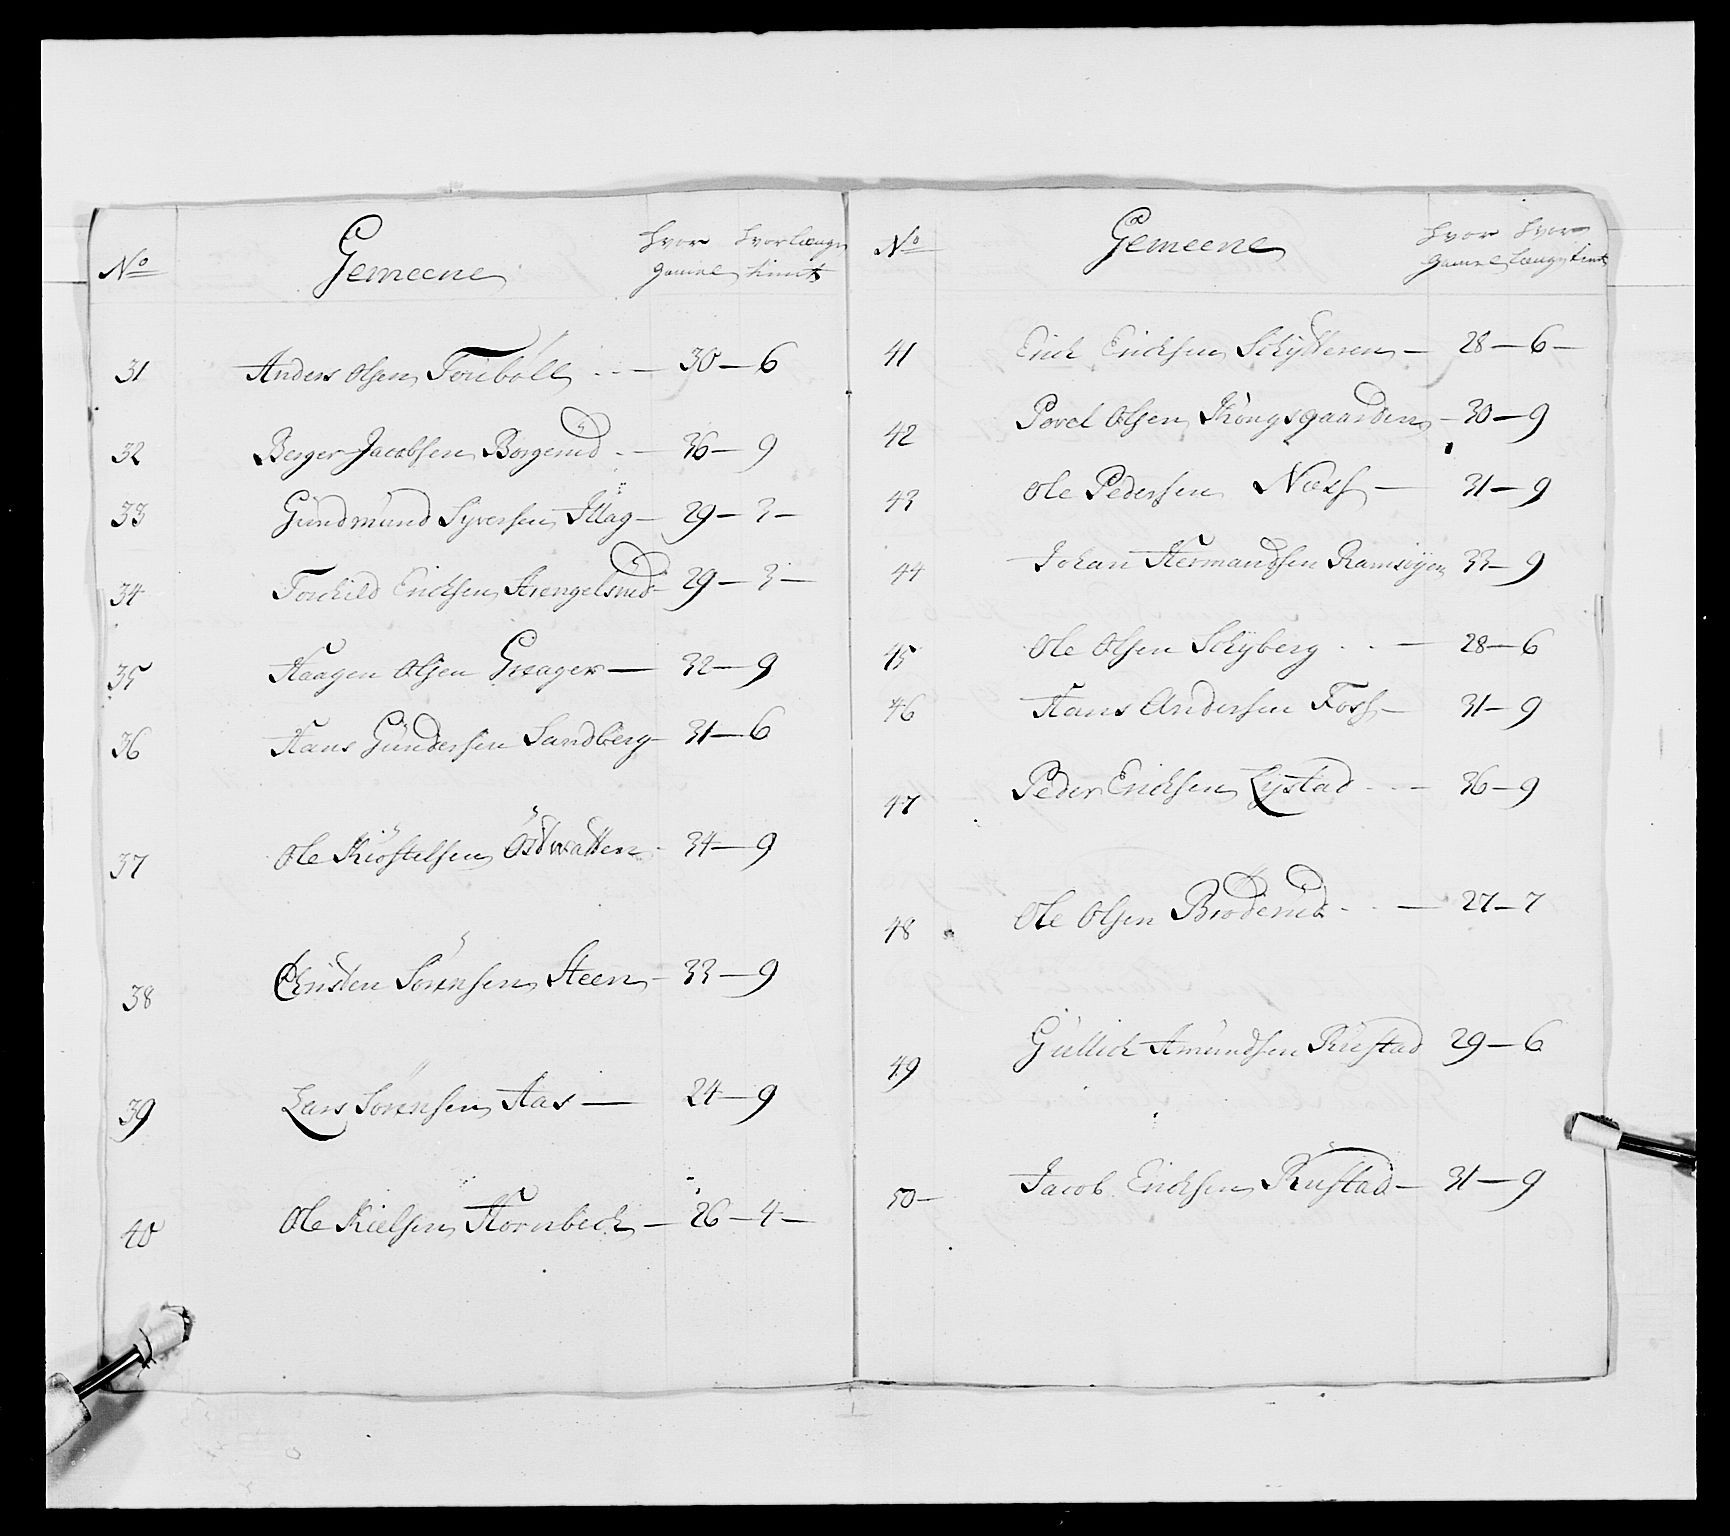 No Gemeene hvor gamel hvorlænge tient
31 Anders Olsen Foribøll - 30 - 6
32 Berger Jacobsen Børgerud - 36 - 9
33 Gundmund Syversen Illag - 29 - 3 -
34 Torchild Erichsen Strengelsrud - 29 - 3 -
35 Haagen Olsen Græager - 32 - 9
36 Hans Gundersen Sandberg - 31 - 6
37 Ole Kiøstelsen - 34 - 9
38 Christen Sørensen Steen - 33 - 9
39 Lars Sørensen Aas - 24 - 9
40 Ole Kielsen Hornbech - 26 - 4 -
No Gemeene hvor gamel hvor længe tient
41 Erich Erichsen Schytteren - 28 - 6 -
42 Povel Olsen Kongsgaarden - 30 - 9
43 Ole Pedersen Næss - 31 - 9
44 Johan Hermandsen 33 - 9
45 Ole Olsen Schyberg - 28 - 6
46 Hans Andersen Foss - 31 - 9
47 Peder Erichsen Lystad - 36 - 9
48 Ole Olsen Broderud - 27 - 7
49 Gullich Amundsen Rustad 29 - 6
50 - Jacob Erichsen Rustad - 31 - 9